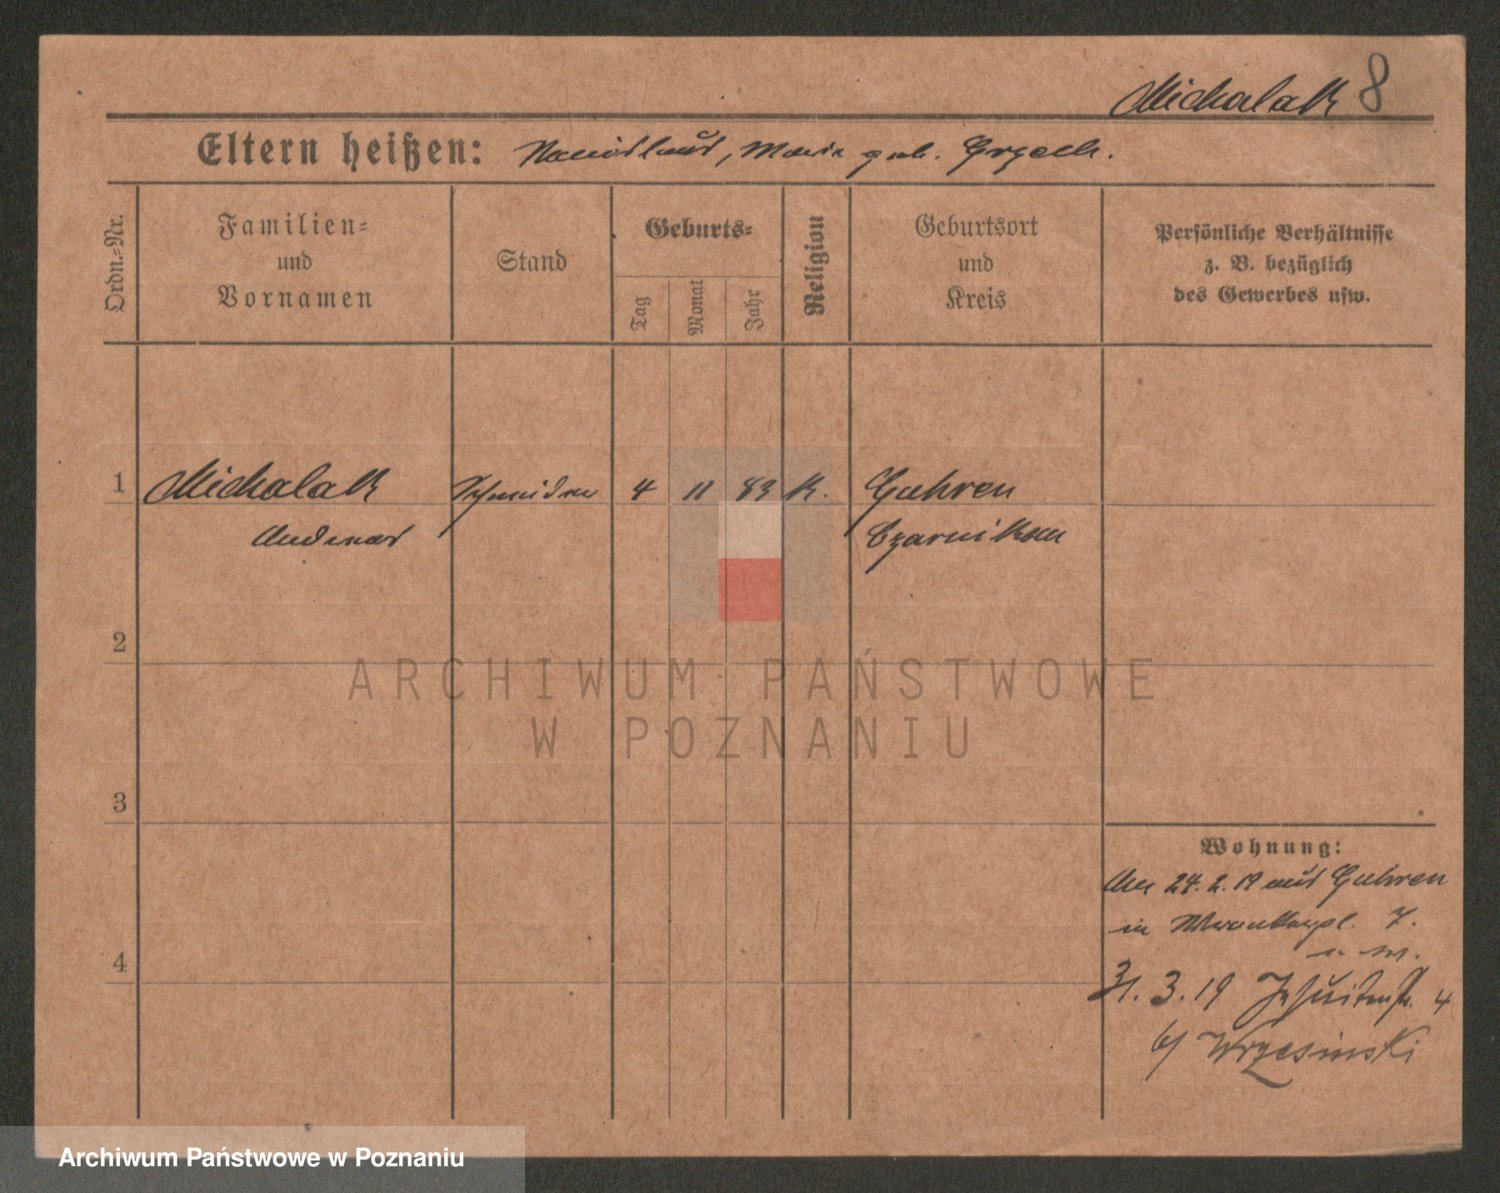 Michalak 8
Eltern heißen: Stanislaus, Maria geb. Grzech.
Ordn.-Nr.
Familien-
und
Vornamen
Stand
Geburts-
Tag
Monat
Jahr
Religion
Geburtsort
und
Kreis
Persönliche Verhältnisse
z. B. bezüglich
des Gewerbes usw.
1 Michalak Schneider 4 11 83 k. Guhren
Andreas Czarnikau
2
ARCHIWUM PAŃSTWOWE
W POZNANIU
3
Wohnung:
24. 2. 19 aus Guhren
in 7.
4
31. 3. 19 Jesuitenstr. 4
b/ Wrzesinski
Archiwum Państwowe w Poznaniu